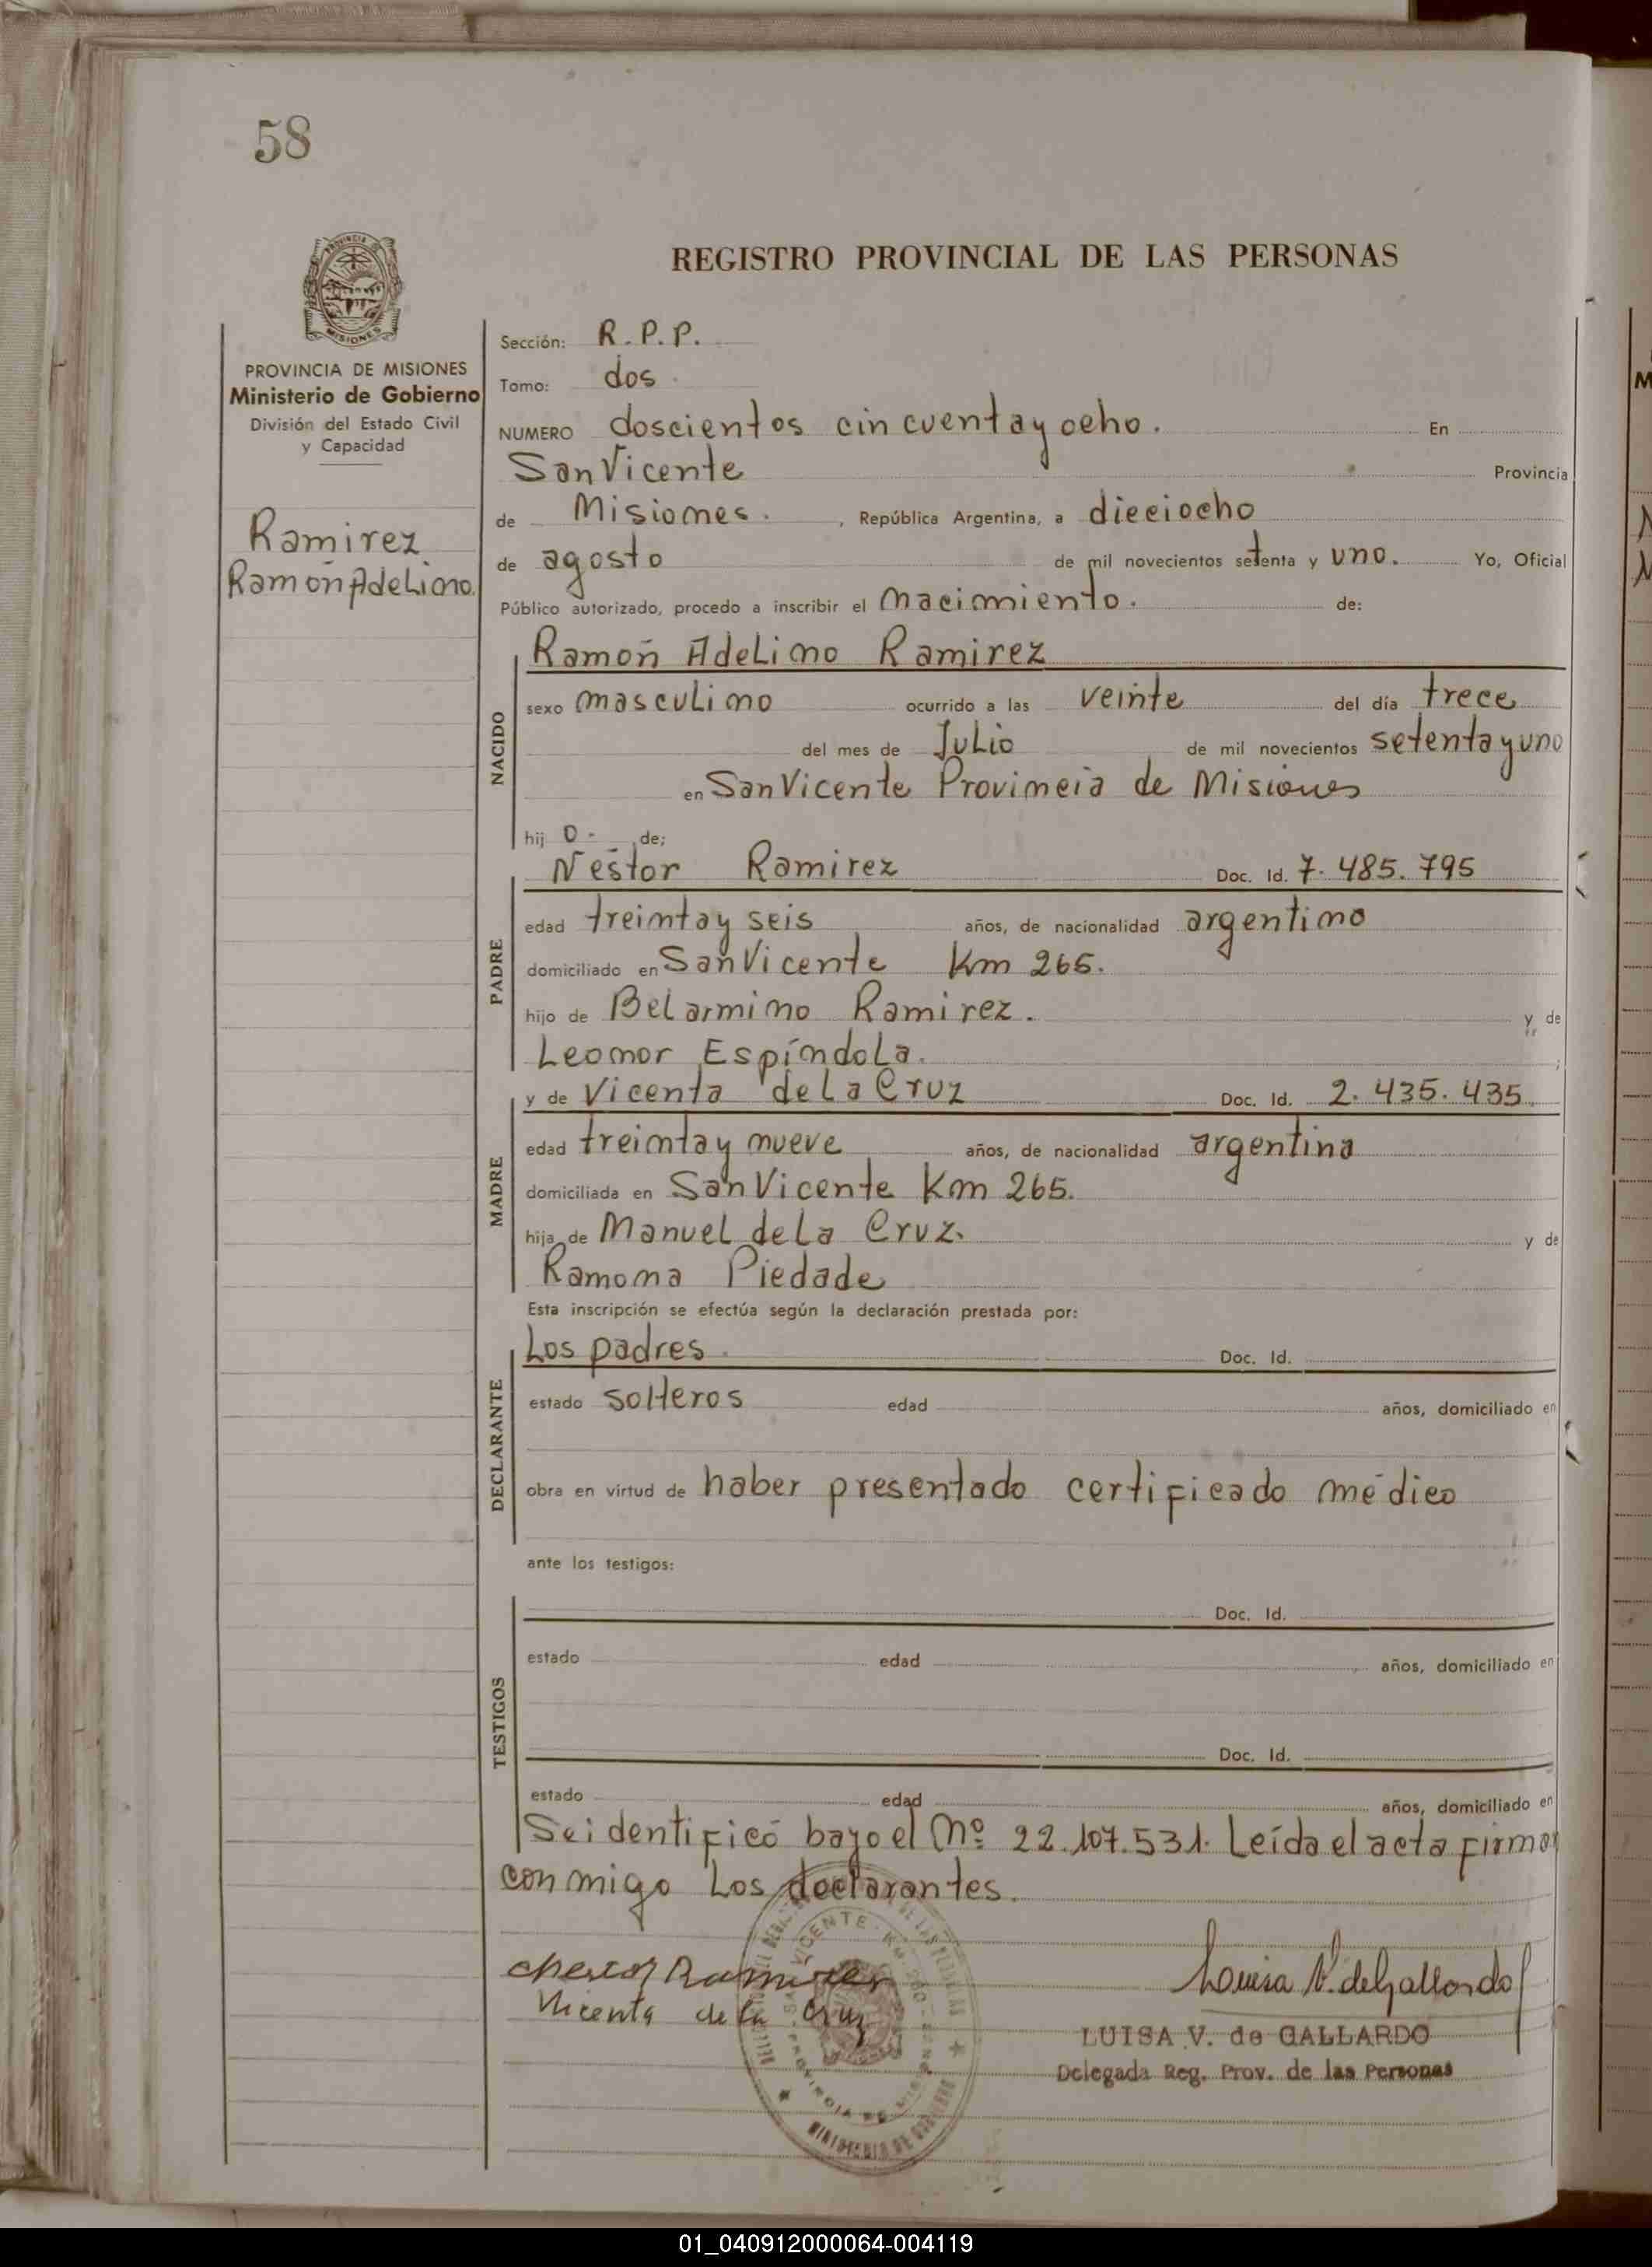 58
REGISTRO PROVINCIAL DE LAS PERSONAS
PROVINCIA DE MISIONES
Ministerio de Gobierno
División del Estado Civil
y Capacidad
Ramirez
Ramón Adelino.
Sección: R.P.P.
Tomo: dos.
NUMERO doscientos cincuenta y ocho. En
San Vicente Provincia
de Misiones. , República Argentina, a dieciocho
de agosto de mil novecientos setenta y uno. Yo, Oficial
Público autorizado, procedo a inscribir el nacimiento. de:
NACIDO
Ramón Adelino Ramirez
sexo masculino ocurrido a las veinte del día trece
del mes de Julio de mil novecientos setenta y uno
en San Vicente Provincia de Misiones
hij o- de;
PADRE
Nestor Ramirez Doc. Id. 7.485.795
edad treinta y seis años, de nacionalidad argentino
domiciliado en San Vicente Km 265.
hijo de Belarmino Ramirez. y de
Leonor Espíndola. ;
MADRE
y de Vicenta de la Cruz Doc. Id. 2.435.435
edad treinta y nueve años, de nacionalidad argentina
domiciliada en San Vicente Km 265.
hija de Manuel de la Cruz. y de
Ramona Piedade
Esta inscripción se efectúa según la declaración prestada por:
DECLARANTE
Los padres. Doc. Id.
estado solteros edad años, domiciliado en
obra en virtud de haber presentado certificado médico
ante los testigos:
TESTIGOS
Doc. Id.
estado edad años, domiciliado en
Doc. Id.
estado edad años, domiciliado en
Se identificó bajo el Nº 22.107.531. Leída el acta firma
conmigo los declarantes.
Ramirez
Vicenta de la Cruz
Luisa V. de Gallardo
LUISA V. de GALLARDO
Delegada Reg. Prov. de las Personas
MINISTERIO DE GOBIERNO
01_040912000064-004119